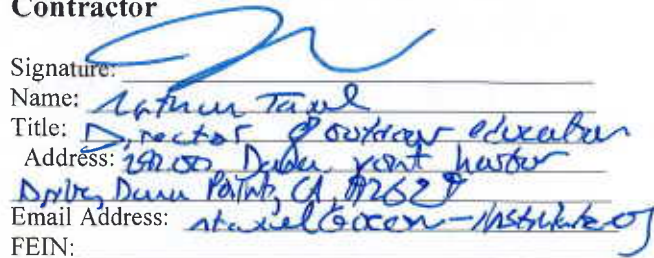 Contractor
Signature:
Name: Nathan Taxel
Title: Director of outdoor education
Address: 24200 Dana point harbor
Drive, Dana Point, CA, 92629
Email Address: ntaxel@ocean-institute.org
FEIN: